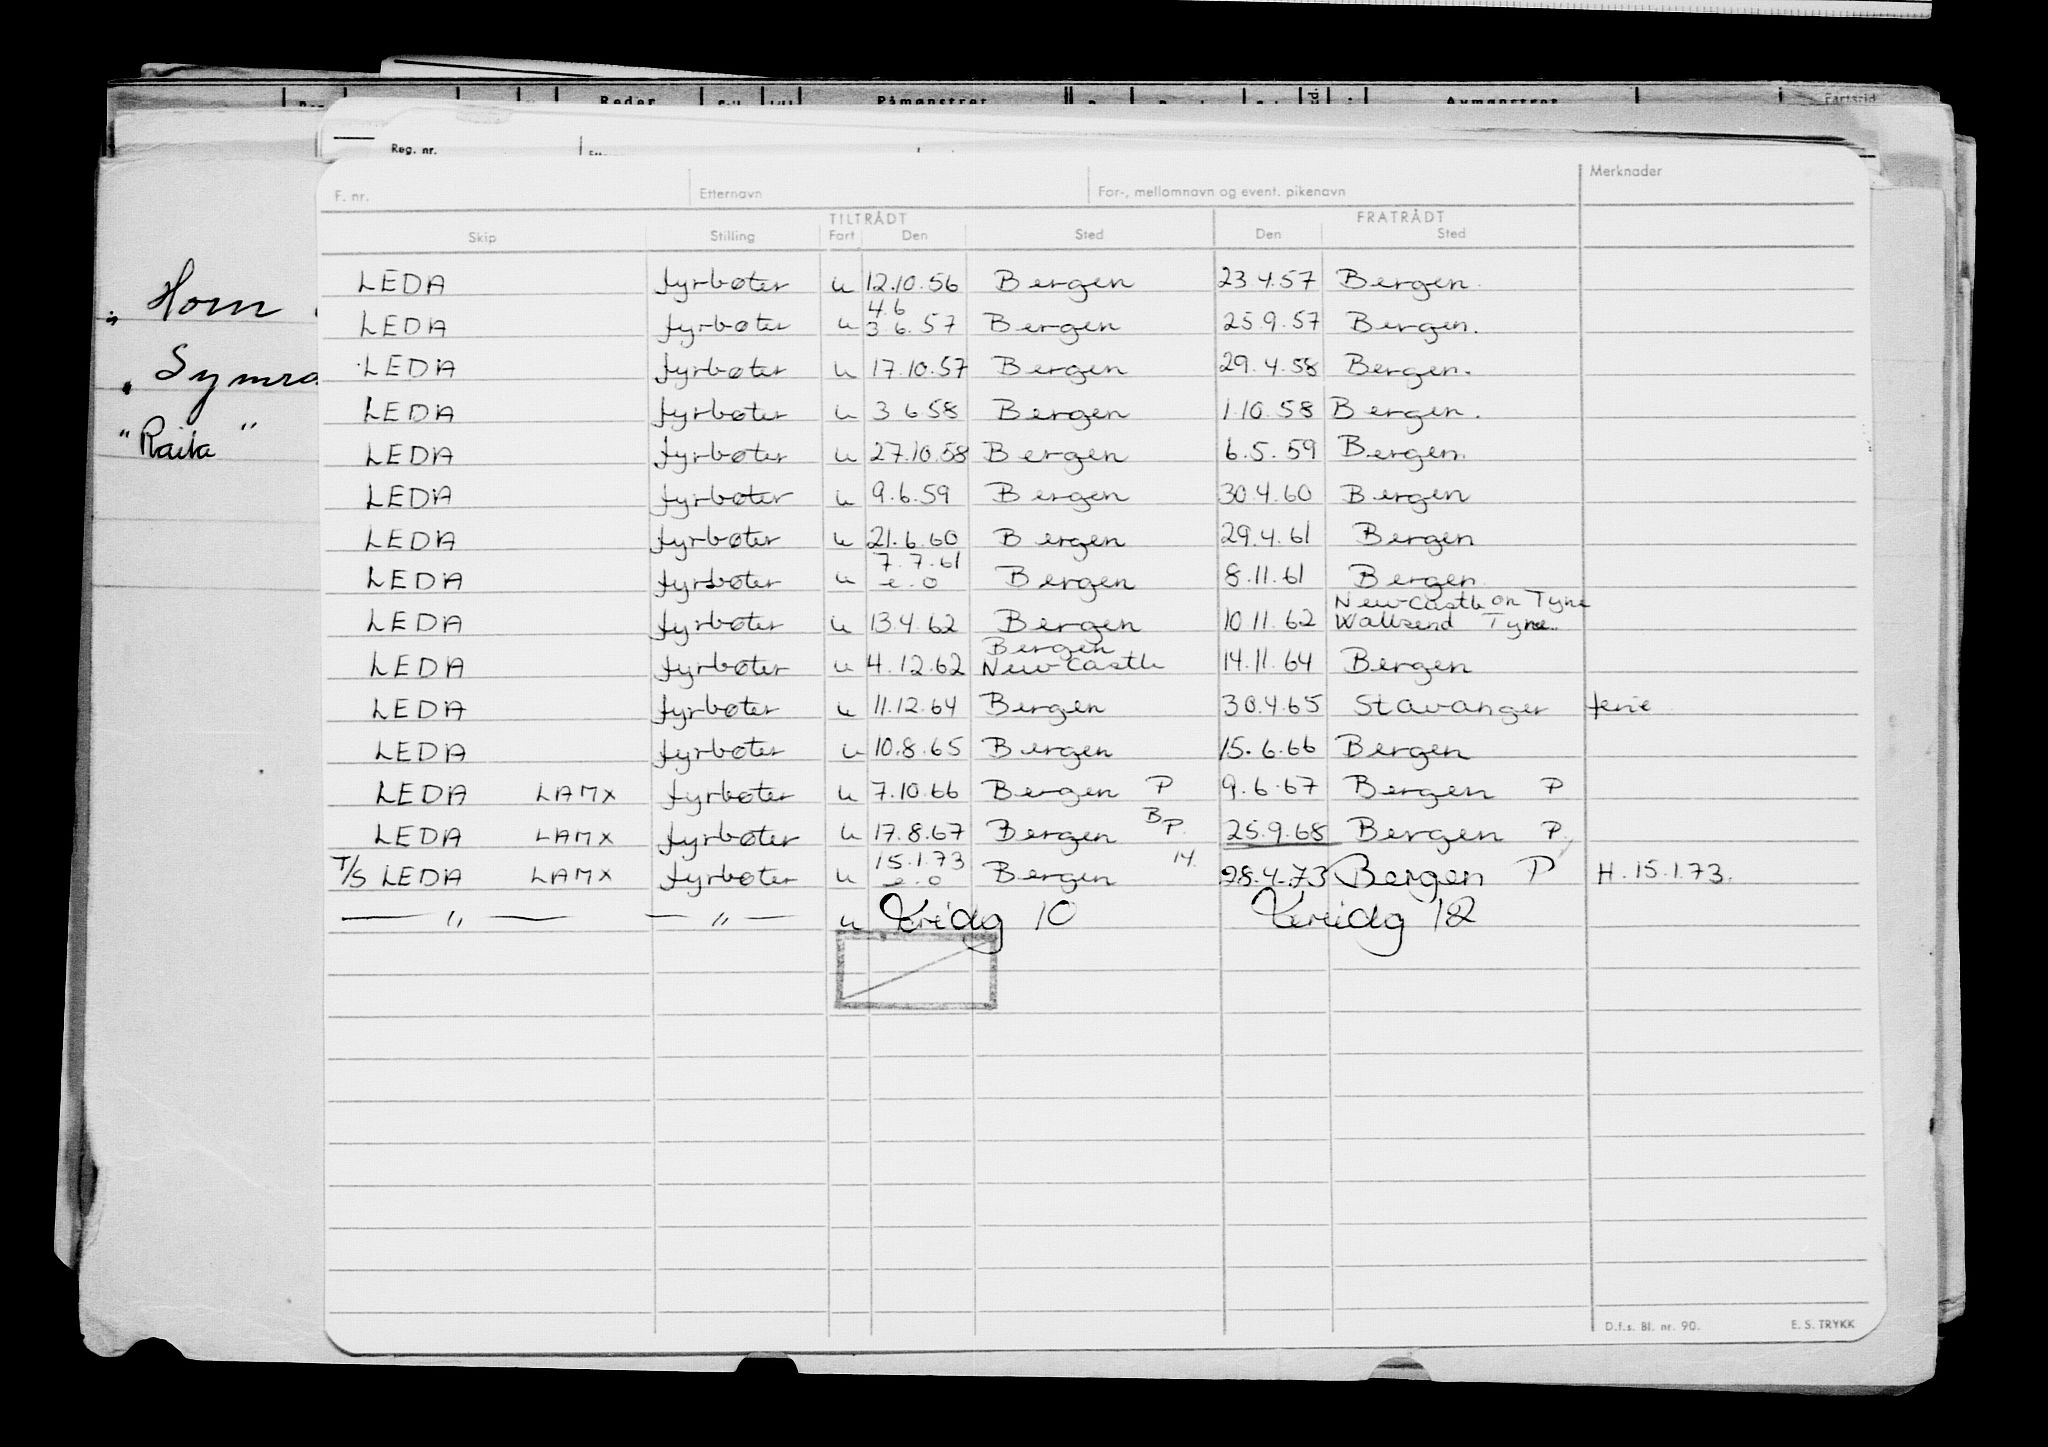 Reder Påmønstret Avmønstret Fartstid
Reg. nr.
Horn
Symra
"Raila"
F. nr. Etternavn For-, mellomnavn og event. pikenavn Merknader
TILTRÅDT FRATRÅDT
Skip Stilling Fart Den Sted Den Sted
LEDA fyrbøter u 12.10.56 Bergen 23.4.57 Bergen.
4.6
LEDA fyrbøter u 3.6.57 Bergen 25.9.57 Bergen.
LEDA fyrbøter u 17.10.57 Bergen 29.4.58 Bergen.
LEDA fyrbøter u 3.6.58 Bergen 1.10.58 Bergen.
LEDA fyrbøter u 27.10.58 Bergen 6.5.59 Bergen.
LEDA fyrbøter u 9.6.59 Bergen 30.4.60 Bergen
LEDA fyrbøter u 21.6.60 Bergen 29.4.61 Bergen
7.7.61
LEDA fyrbøter u e.o Bergen 8.11.61 Bergen.
Newcastle on Tyne
LEDA fyrbøter u 13.4.62 Bergen 10.11.62 Wallsend Tyne.
Bergen
LEDA fyrbøter u 4.12.62 Newcastle 14.11.64 Bergen
LEDA fyrbøter u 11.12.64 Bergen 30.4.65 Stavanger ferie
LEDA fyrbøter u 10.8.65 Bergen 15.6.66 Bergen
LEDA LAMX fyrbøter u 7.10.66 Bergen P 9.6.67 Bergen P
LEDA LAMX fyrbøter u 17.8.67 Bergen BP. 25.9.68 Bergen P.
15.1.73 14.
T/S LEDA LAMX fyrbøter u e.o Bergen 28.4.73 Bergen P H.15.1.73.
— " — — " — u 10 12
D.f.s. Bl. nr. 90. E. S. TRYKK